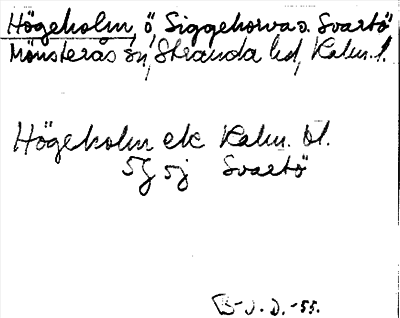 Högeholm, ö, Siggehorva o. Svartö
Mönsterås sn, Stranda hd, Kalm. l.
Högeholm ek Kalm. bl.
5G 5j Svartö
B-J. D. -55.